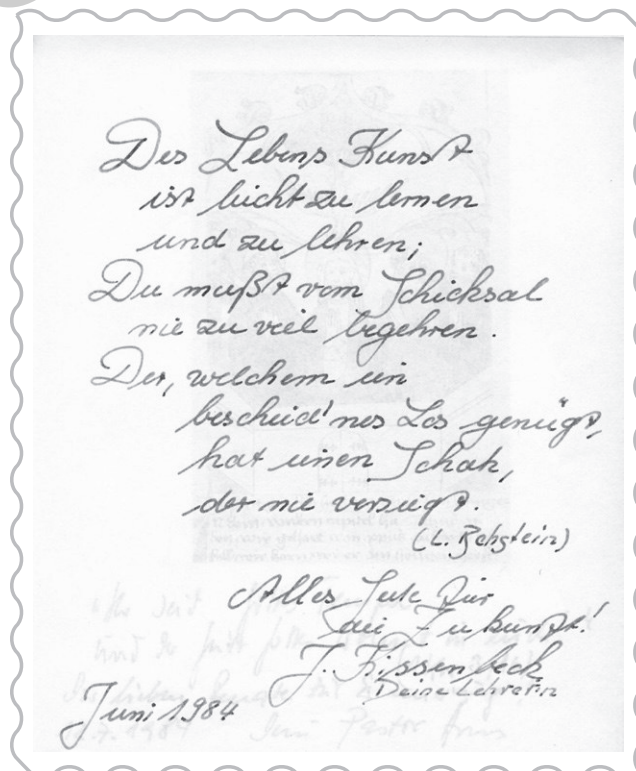 Des Lebens Kunst
ist leicht zu lernen
und zu lehren;
Du mußt vom Schicksal
nie zu viel begehren.
Der, welchem ein
bescheid'nes Los genügt,
hat einen Schatz,
der nie versiegt.
(L. Bechstein)
Alles Gute für
die Zukunft!
J. Fissenbeck
Deine Lehrerin
Juni 1984